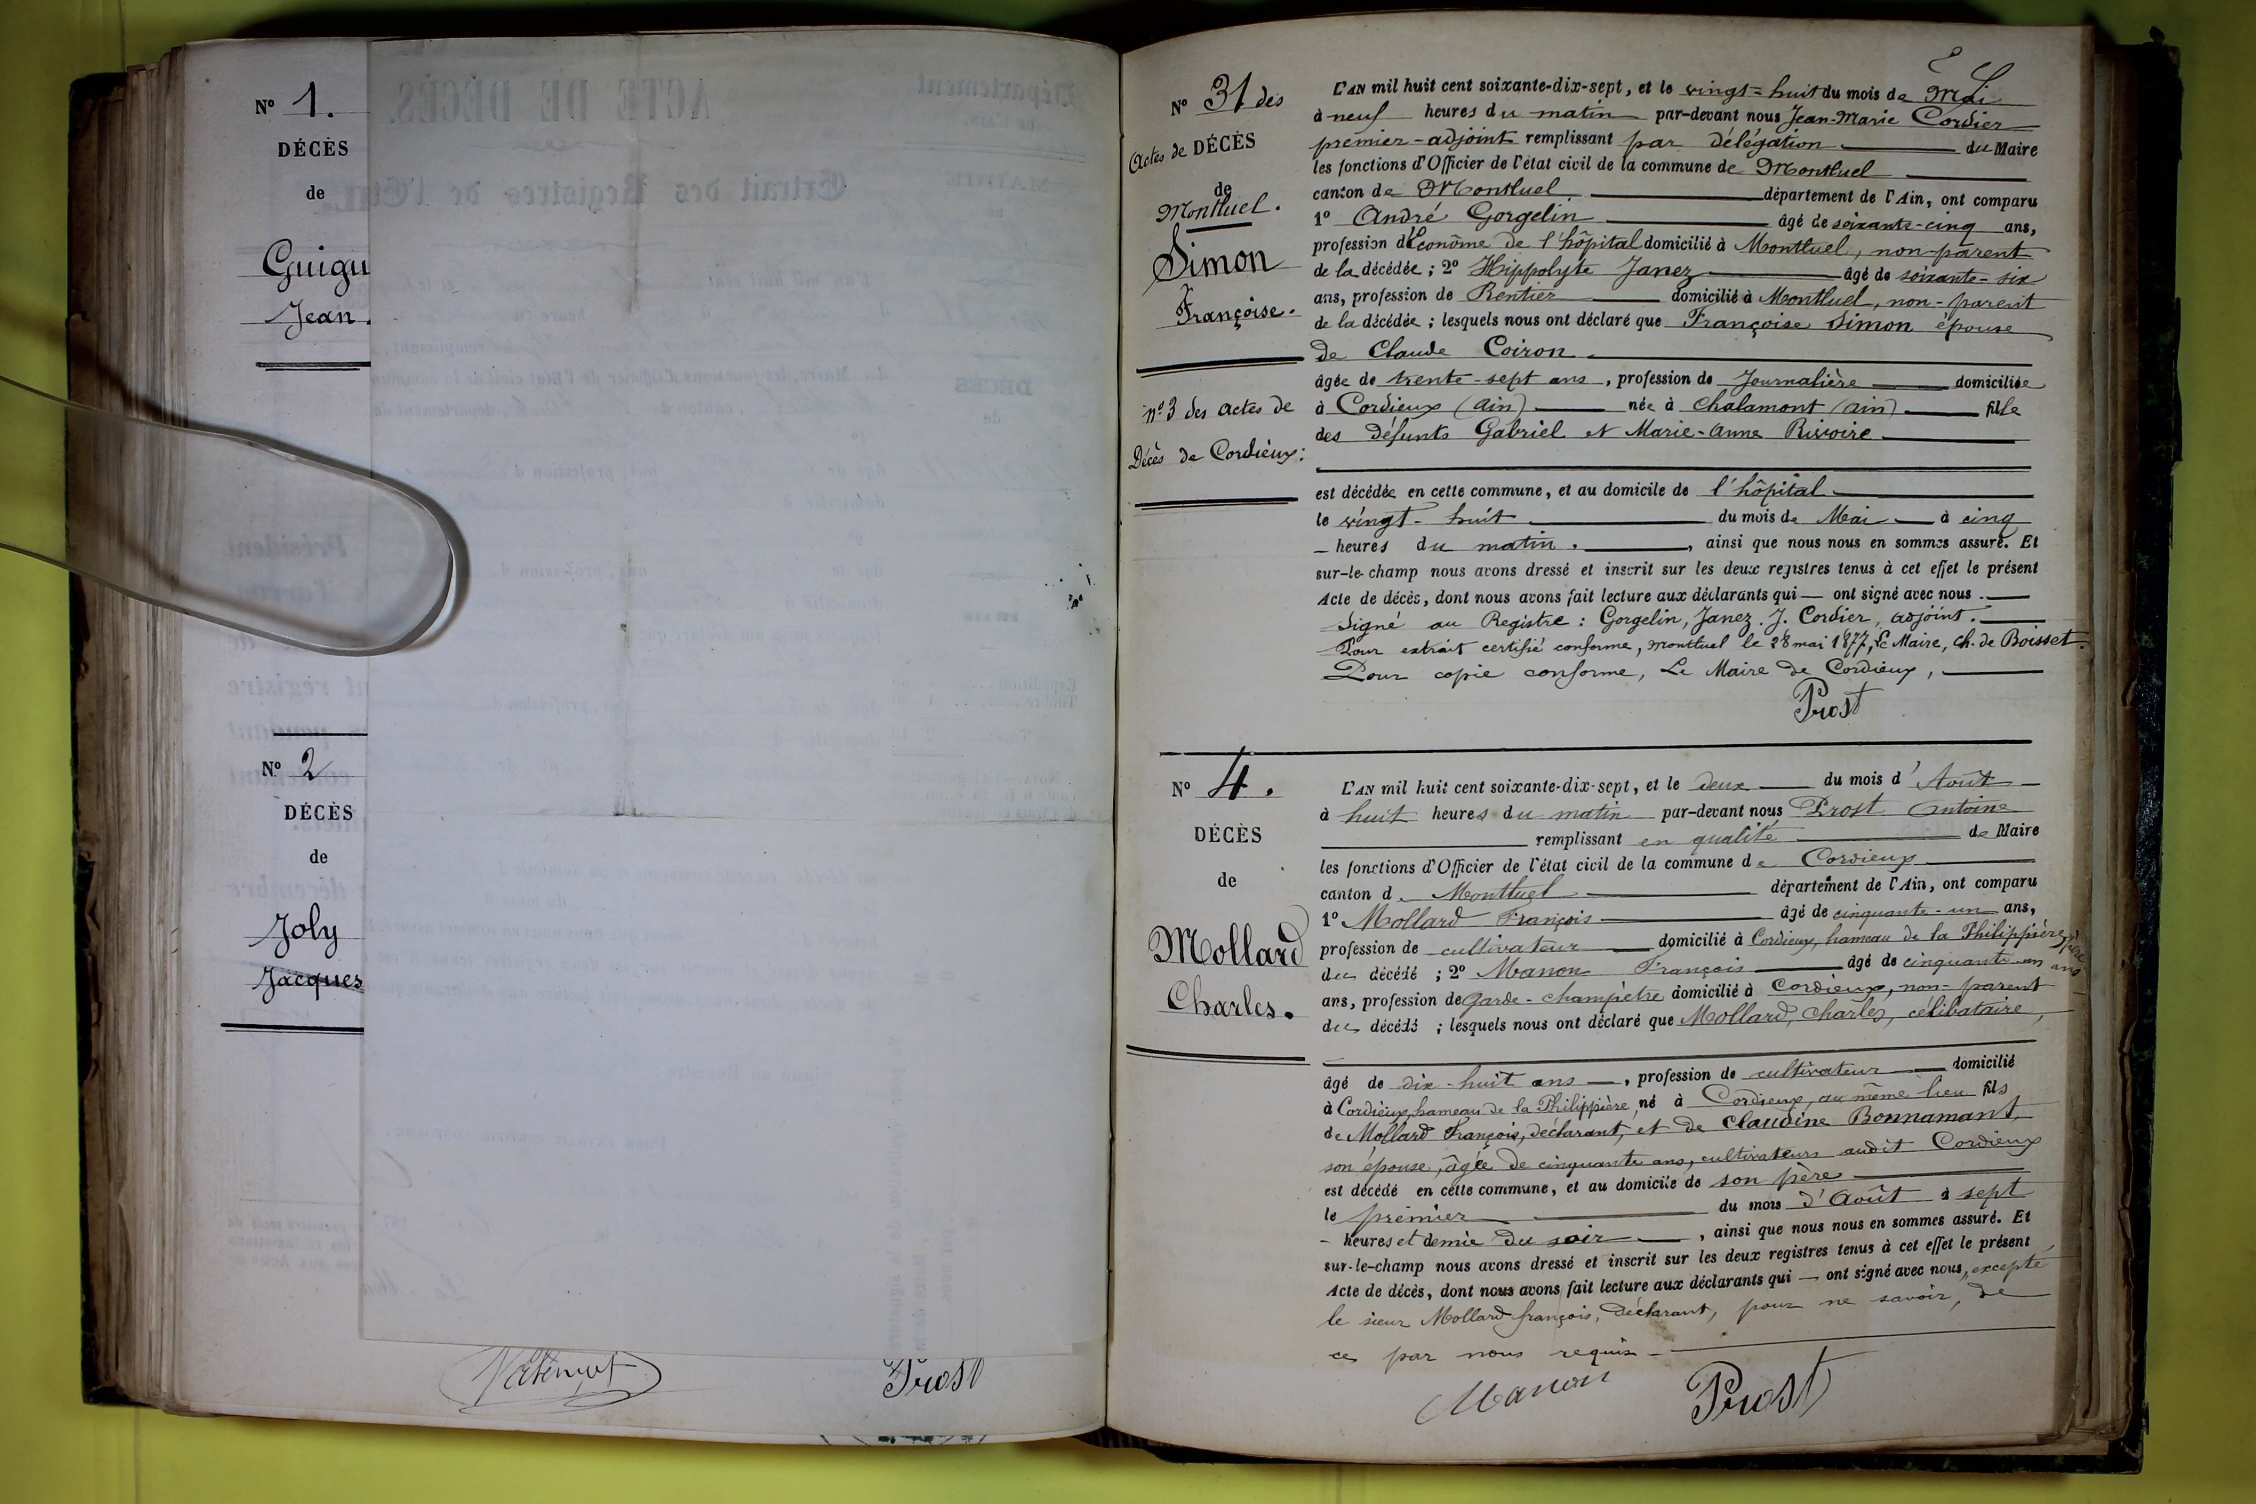 N° 1.
DÉCÈS
de
Guigu
Jean.
N° 2
DÉCÈS
de
Joly
Jacques
Prost
N° 31 des
Actes de DÉCÈS
de
Montluel.
Simon
Françoise.
n° 3 des actes de
Décès de Cordieux:
L'AN mil huit cent soixante-dix-sept, et le vingt-huit du mois de Mai
à neuf heures du matin par-devant nous Jean-Marie Cordier
premier-adjoint remplissant par délégation du Maire
les fonctions d'Officier de l'état civil de la commune de Montluel
canton de Montluel département de l'Ain, ont comparu
1° André Gorgelin âgé de soixante-cinq ans,
profession d'Econôme de l'hôpital domicilié à Montluel, non-parent
de la décédée ; 2° Hippolyte Janez âgé de soixante-six
ans, profession de Rentier domicilié à Montluel, non-parent
de la décédée ; lesquels nous ont déclaré que Françoise Simon épouse
de Claude Coiron.
âgée de trente-sept ans, profession de Journalière domiciliée
à Cordieux (Ain) née à Chalamont (Ain) fille
des défunts Gabriel et Marie-Anne Rivoire
est décédée en cette commune, et au domicile de l'hôpital
le vingt-huit du mois de Mai à cinq
heures du matin. , ainsi que nous nous en sommes assuré. Et
sur-le-champ nous avons dressé et inscrit sur les deux registres tenus à cet effet le présent
Acte de décès, dont nous avons fait lecture aux déclarants qui ont signé avec nous.
Signé au Registre : Gorgelin, Janez. J. Cordier, adjoint.
Pour extrait certifié conforme, Montluel le 28 mai 1877, Le Maire, Ch. de Boisset.
Pour copie conforme, Le Maire de Cordieux,
Prost
N° 4.
DÉCÈS
de
Mollard
Charles.
L'AN mil huit cent soixante-dix-sept, et le deux du mois d'Août
à huit heures du matin par-devant nous Prost Antoine
remplissant en qualité de Maire
les fonctions d'Officier de l'état civil de la commune de Cordieux
canton d Montluel département de l'Ain, ont comparu
1° Mollard François âgé de cinquante-un ans,
profession de cultivateur domicilié à Cordieux, hameau de la Philippière, père
du décédé ; 2° Manon François âgé de cinquante-un ans
ans, profession de Garde-champêtre domicilié à Cordieux, non-parent
du décédé ; lesquels nous ont déclaré que Mollard, Charles, célibataire,
âgé de dix-huit ans, profession de cultivateur domicilié
à Cordieux, hameau de la Philippière, né à Cordieux, au même lieu fils
de Mollard François, déclarant, et de Claudine Bonnamant,
son épouse, âgée de cinquante ans, cultivateurs audit Cordieux
est décédé en cette commune, et au domicile de son père
le premier du mois d'Août à sept
heures et demie du soir , ainsi que nous nous en sommes assuré. Et
sur-le-champ nous avons dressé et inscrit sur les deux registres tenus à cet effet le présent
Acte de décès, dont nous avons fait lecture aux déclarants qui ont signé avec nous, excepté
le sieur Mollard françois, déclarant, pour ne savoir, de
ce par nous requis
Manon Prost